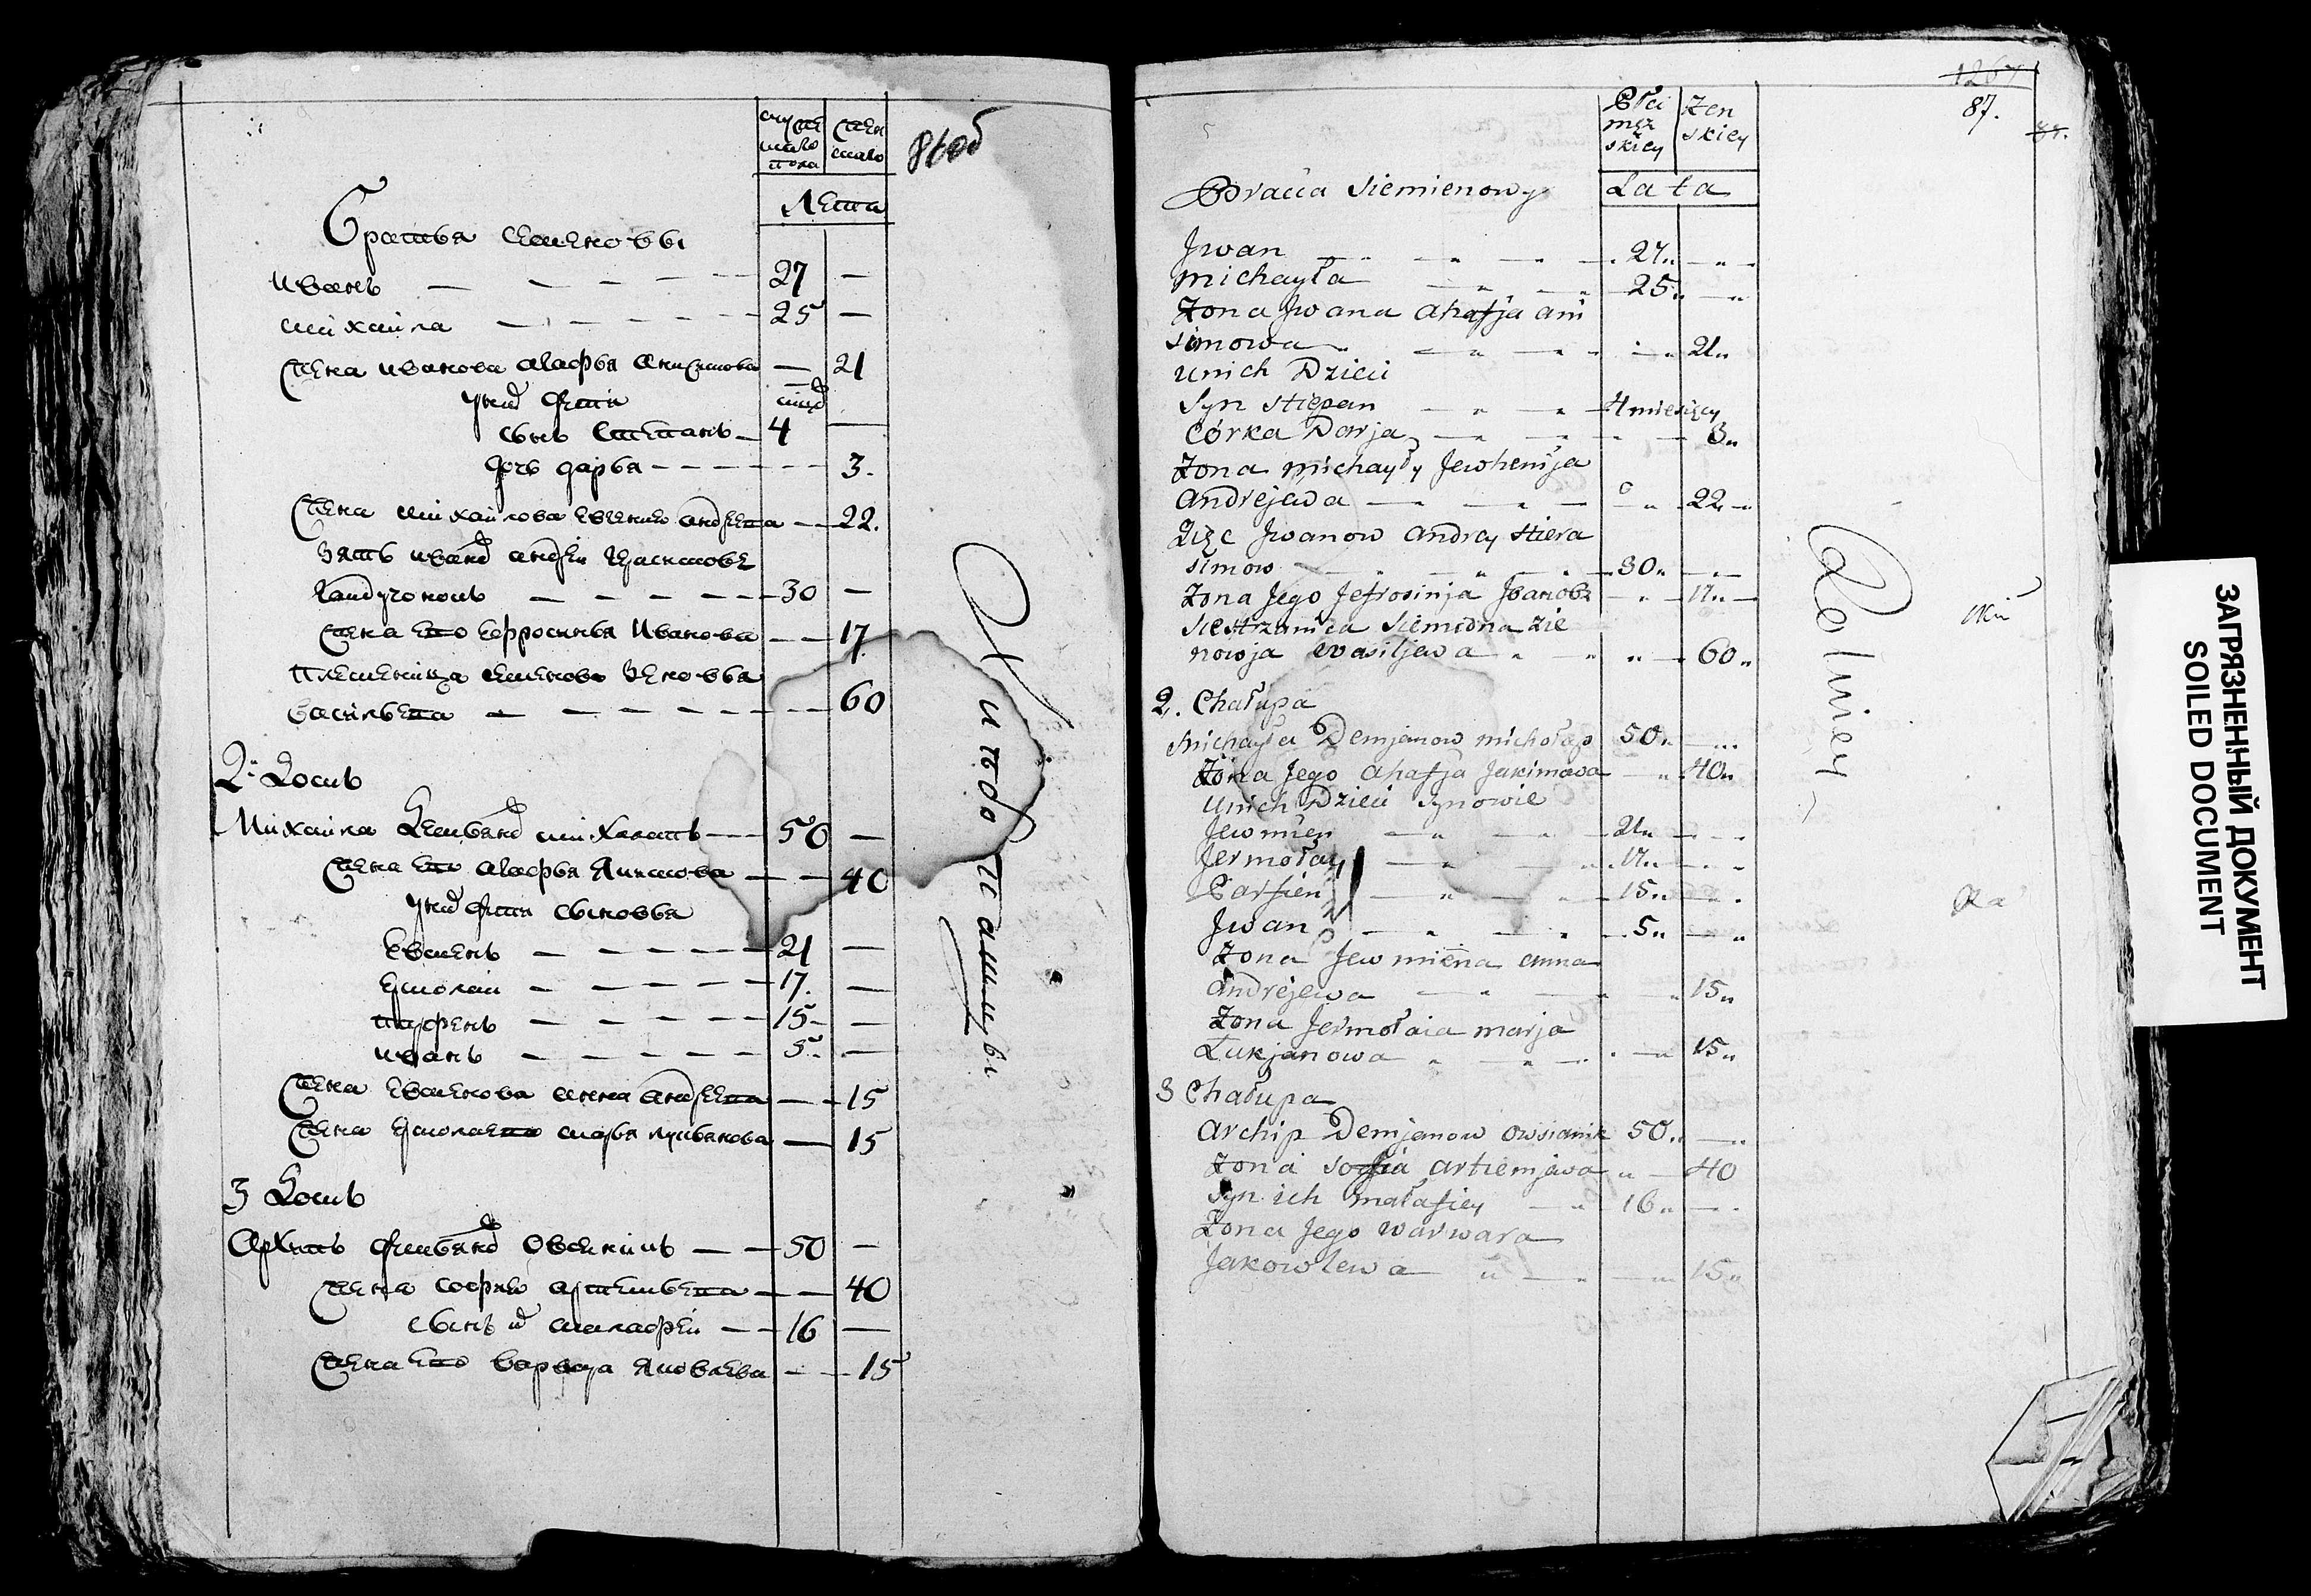 мужескаго пола
женскаго
86 об
Лета
Братья Семеновы
Иванъ 27 —
Михайла — 25 —
Жена Иванова Агафья Анисимова — 21
У них дети
Сынъ Степанъ 4 —
Дочь Дарья 3.
Жена Михайлова Евгения Андреева 22.
Зять Иванов Андрей
30 —
Жена его Ефросинья Иванова 17
Племенница Семенова Зеновья
Васильева 60
2. Домъ
Михайла Демьянов 50 —
Жена его Агафья Якимова 40
У них дети сыновья
Евменъ 21 —
Ермолай 17. —
Парфенъ 15 —
Иванъ 5. —
Жена Евменова Анна Андреева 15
Жена Ермолаева Марья Лукьянова 15
3 Домъ
Архипъ Демьянов 50 —
Жена Софья Артемьева 40
Сынъ их Малафей 16 —
Жена его Варвара Яковлева 15
87.
Płci męz skiey
Zen skiey
Lata
Bracia Siemienowy
Jwan 27 "
Michayła 25 "
Zona Jwana Ahafja Ani
simowa 21 "
Unich Dzieci
Syn Stiepan 4 miesięcy
Córka Darja 3 "
Zona Michayły Jewhenija
Andrejewa 22 "
Zięc Jwanow Andrey Hiera
simow 30 "
Zona Jego Jefrosinja Jвановa 17 "
Siestrzanica Siemiona Zie
nowja Wasiljewa 60 "
2. Chałupa
Michayła Demjanow Michołap 50 "
Zona Jego Ahafja Jakimowa 40 "
Unich Dzieci Synowie
Jewmien 21 "
Jermołay 17 "
Parfien 15 "
Jwan 5 "
Zona Jewmiena Anna
Andrejewa 15 "
Zona Jermołaia Marja
Łukjanowa 15 "
3 Chałupa
Archip Demjanow Owsianik 50 "
Zona Sofia Artiemjewa 40
Syn ich Małafiey 16 "
Zona Jego Warwara
Jakowlewa 15 "
ЗАГРЯЗНЕННЫЙ ДОКУМЕНТ
SOILED DOCUMENT